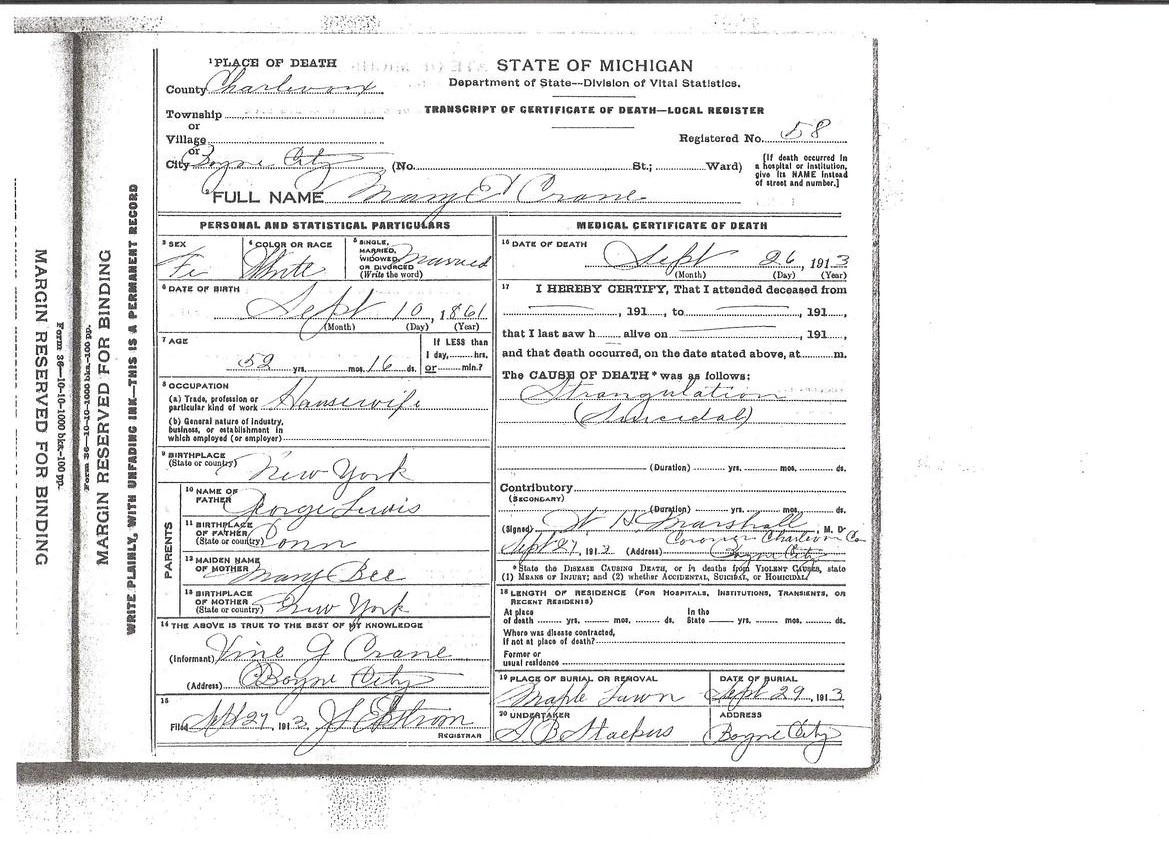 MARGIN RESERVED FOR BINDING
Form 36—10-10-1000 bks.-100 pp.
Form 36—10-10-1000 bks.-100 pp.
MARGIN RESERVED FOR BINDING
WRITE PLAINLY, WITH UNFADING INK—THIS IS A PERMANENT RECORD
1 PLACE OF DEATH
County Charlevoix
Township
or
Village
or
City Boyne City
STATE OF MICHIGAN
Department of State—Division of Vital Statistics.
TRANSCRIPT OF CERTIFICATE OF DEATH—LOCAL REGISTER
Registered No. 58
(No. St.; Ward)
[If death occurred in
a hospital or institution,
give its NAME instead
of street and number.]
FULL NAME Mary E Crane
PERSONAL AND STATISTICAL PARTICULARS
3 SEX
Fe
4 COLOR OR RACE
White
5 SINGLE,
MARRIED,
WIDOWED
OR DIVORCED
(Write the word)
Married
6 DATE OF BIRTH
Sept 10, 1861
(Month) (Day) (Year)
7 AGE
52 yrs. mos. 16 ds.
If LESS than
1 day, hrs.
or min.?
8 OCCUPATION
(a) Trade, profession or
particular kind of work Housewife
(b) General nature of industry,
business, or establishment in
which employed (or employer)
9 BIRTHPLACE
(State or country) New York
PARENTS
10 NAME OF
FATHER George Lewis
11 BIRTHPLACE
OF FATHER
(State or country) Conn
12 MAIDEN NAME
OF MOTHER Mary Bee
13 BIRTHPLACE
OF MOTHER
(State or country) New York
14 THE ABOVE IS TRUE TO THE BEST OF MY KNOWLEDGE
(Informant) Vine G Crane
(Address) Boyne City
15
Filed Sept 27, 1913
REGISTRAR
MEDICAL CERTIFICATE OF DEATH
16 DATE OF DEATH
Sept 26, 1913
(Month) (Day) (Year)
17 I HEREBY CERTIFY, That I attended deceased from
, 191 , to , 191 ,
that I last saw h alive on , 191 ,
and that death occurred, on the date stated above, at m.
The CAUSE OF DEATH * was as follows:
Strangulation
(Suicidal)
(Duration) yrs. mos. ds.
Contributory
(SECONDARY)
(Duration) yrs. mos. ds.
(Signed) W H Marshall, M. D.
Coroner Charlevoix Co
Sept 27, 1913 (Address) Boyne City
*State the DISEASE CAUSING DEATH, or in deaths from VIOLENT CAUSES, state
(1) MEANS OF INJURY; and (2) whether ACCIDENTAL, SUICIDAL, or HOMICIDAL.
18 LENGTH OF RESIDENCE (FOR HOSPITALS, INSTITUTIONS, TRANSIENTS, OR
RECENT RESIDENTS)
At place In the
of death yrs. mos. ds. State yrs. mos. ds.
Where was disease contracted,
if not at place of death?
Former or
usual residence
19 PLACE OF BURIAL OR REMOVAL
Maple Lawn
DATE OF BURIAL
Sept 29, 1913
20 UNDERTAKER
ADDRESS
Boyne City